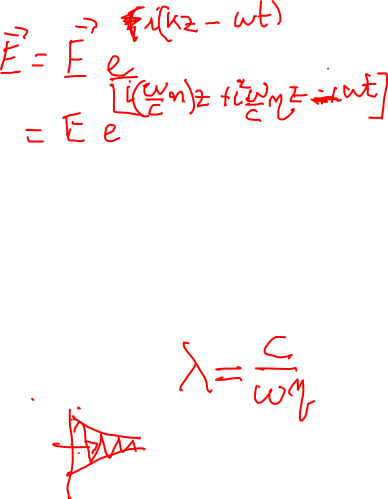 E⃗ = E⃗ e^{i(kz − ωt)}
= E e^{[i(ω/c n)z + i² ω/c η z − iωt]}
λ = c/(ωη)